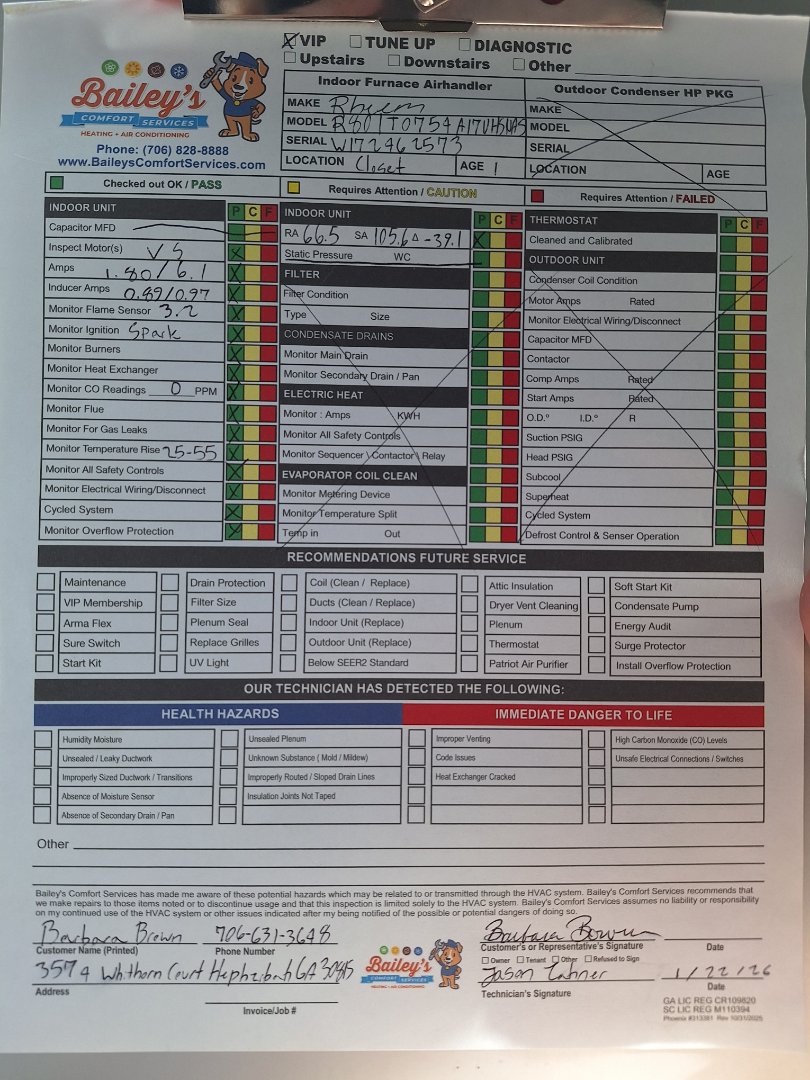 VIP TUNE UP DIAGNOSTIC
Upstairs Downstairs Other
Bailey's
COMFORT SERVICES
HEATING + AIR CONDITIONING
Phone: (706) 828-8888
www.BaileysComfortServices.com
Indoor Furnace Airhandler
MAKE Rheem
MODEL R801T0754A17UHSNAS
SERIAL W172462573
LOCATION Closet AGE 1
Outdoor Condenser HP PKG
MAKE
MODEL
SERIAL
LOCATION AGE
Checked out OK / PASS
Requires Attention / CAUTION
Requires Attention / FAILED
INDOOR UNIT P C F
Capacitor MFD
Inspect Motor(s) VS
Amps 1.80/6.1
Inducer Amps 0.89/0.97
Monitor Flame Sensor 3.2
Monitor Ignition Spark
Monitor Burners
Monitor Heat Exchanger
Monitor CO Readings 0 PPM
Monitor Flue
Monitor For Gas Leaks
Monitor Temperature Rise 25-55
Monitor All Safety Controls
Monitor Electrical Wiring/Disconnect
Cycled System
Monitor Overflow Protection
INDOOR UNIT P C F
RA 66.5 SA 105.6 Δ -39.1
Static Pressure WC
FILTER
Filter Condition
Type Size
CONDENSATE DRAINS
Monitor Main Drain
Monitor Secondary Drain / Pan
ELECTRIC HEAT
Monitor : Amps KWH
Monitor All Safety Controls
Monitor Sequencer \ Contactor \ Relay
EVAPORATOR COIL CLEAN
Monitor Metering Device
Monitor Temperature Split
Temp in Out
THERMOSTAT P C F
Cleaned and Calibrated
OUTDOOR UNIT
Condenser Coil Condition
Motor Amps Rated
Monitor Electrical Wiring/Disconnect
Capacitor MFD
Contactor
Comp Amps Rated
Start Amps Rated
O.D.º I.D.º R
Suction PSIG
Head PSIG
Subcool
Superheat
Cycled System
Defrost Control & Senser Operation
RECOMMENDATIONS FUTURE SERVICE
Maintenance Drain Protection Coil (Clean / Replace) Attic Insulation Soft Start Kit
VIP Membership Filter Size Ducts (Clean / Replace) Dryer Vent Cleaning Condensate Pump
Arma Flex Plenum Seal Indoor Unit (Replace) Plenum Energy Audit
Sure Switch Replace Grilles Outdoor Unit (Replace) Thermostat Surge Protector
Start Kit UV Light Below SEER2 Standard Patriot Air Purifier Install Overflow Protection
OUR TECHNICIAN HAS DETECTED THE FOLLOWING:
HEALTH HAZARDS IMMEDIATE DANGER TO LIFE
Humidity Moisture Unsealed Plenum Improper Venting High Carbon Monoxide (CO) Levels
Unsealed / Leaky Ductwork Unknown Substance ( Mold / Mildew) Code Issues Unsafe Electrical Connections / Switches
Improperly Sized Ductwork / Transitions Improperly Routed / Sloped Drain Lines Heat Exchanger Cracked
Absence of Moisture Sensor Insulation Joints Not Taped
Absence of Secondary Drain / Pan
Other
Bailey's Comfort Services has made me aware of these potential hazards which may be related to or transmitted through the HVAC system. Bailey's Comfort Services recommends that
we make repairs to those items noted or to discontinue usage and that this inspection is limited solely to the HVAC system. Bailey's Comfort Services assumes no liability or responsibility
on my continued use of the HVAC system or other issues indicated after my being notified of the possible or potential dangers of doing so.
Barbara Brown 706-631-3648 Barbara Brown
Customer Name (Printed) Phone Number Customer's or Representative's Signature Date
Owner Tenant Other Refused to Sign
3574 Whthorn Court Hephzibah GA 30815
Address
Bailey's
COMFORT SERVICES
HEATING + AIR CONDITIONING
Jason 1/22/26
Technician's Signature Date
Invoice/Job #
GA LIC REG CR109820
SC LIC REG M110394
Phoenix #313381 Rev 10/31/2025